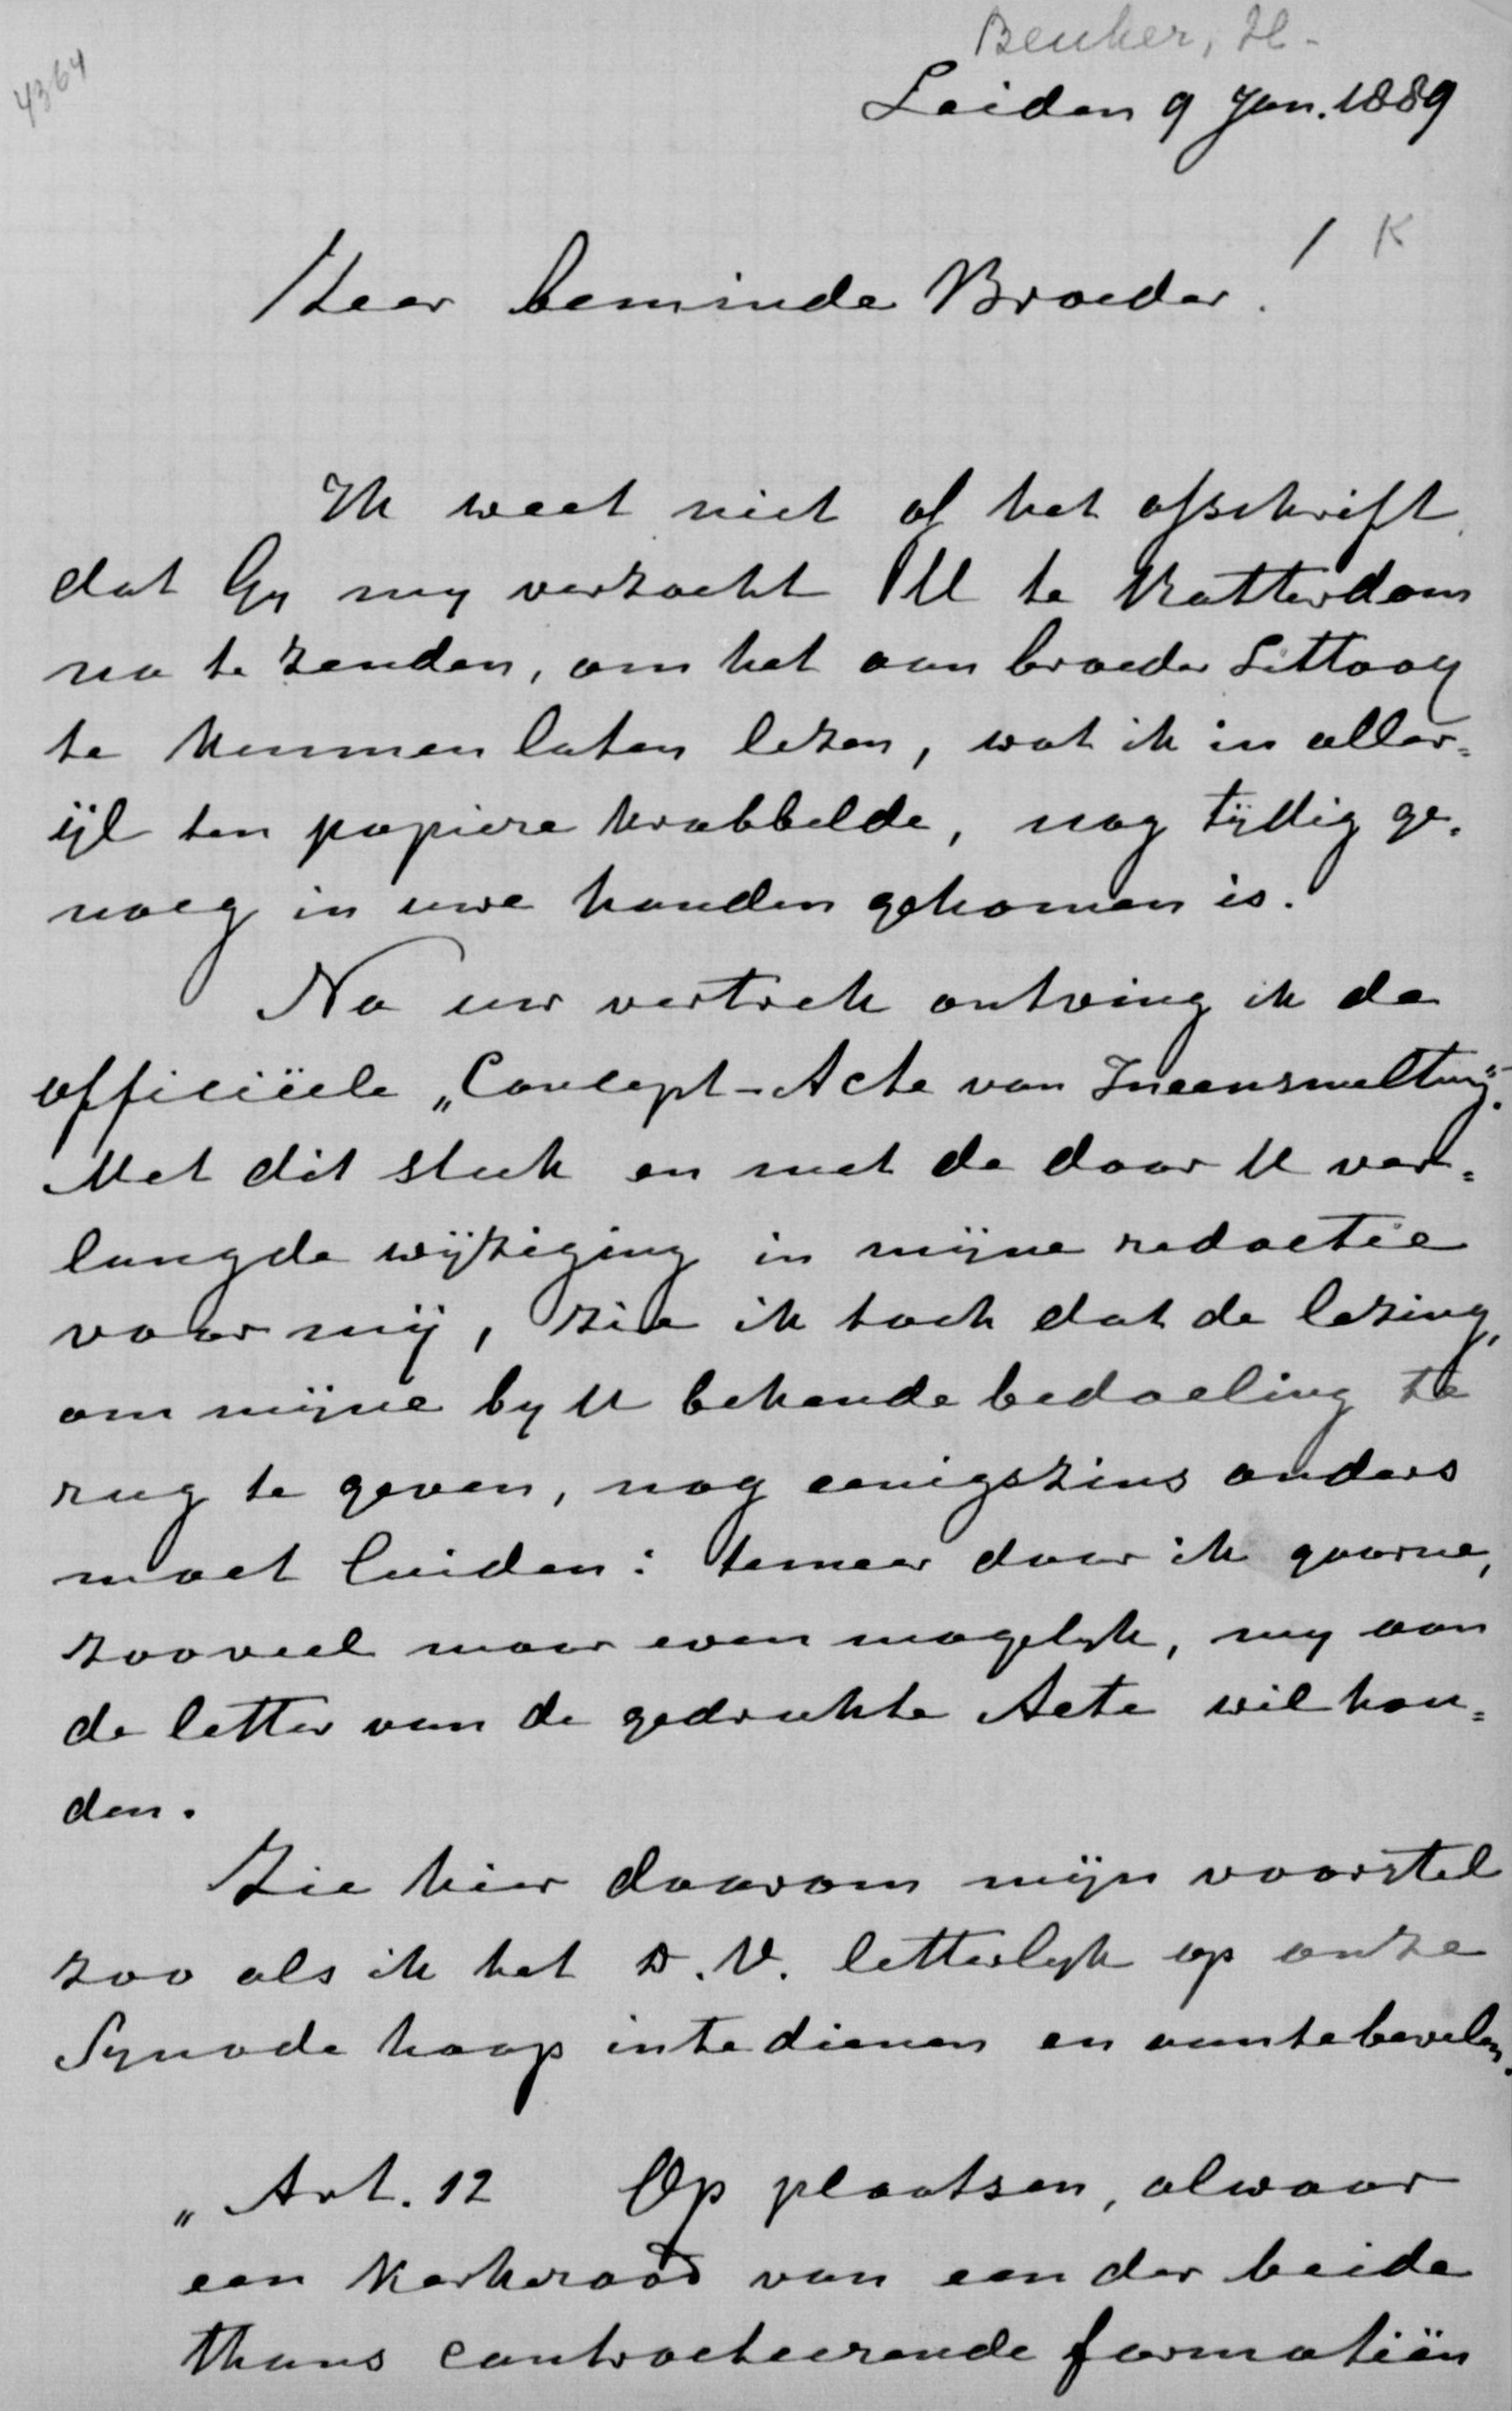 4364
Beuker, H.
Leiden 9 Jan. 1889
K
Zeer beminde Broeder!
Ik weet niet of het afschrift
dat Gy my verzocht U te Rotterdam
na te zenden, om het aan broeder Littooy
te kunnen laten lezen, wat ik in aller=
ijl ten papiere krabbelde, nog tijdig ge=
noeg in uwe handen gekomen is.
Na uw vertrek ontving ik de
officiëele „Concept-Acte van Ineensmelting".
Met dit stuk en met de door U ver=
langde wijziging in mijne redactie
voor mij, zie ik toch dat de lezing,
om mijne by U bekende bedoeling te
rug te geven, nog eenigszins anders
moet luiden: temeer daar ik gaarne,
zooveel maar even mogelyk, my aan
de letter van de gedrukte Acte wil hou=
den.
Zie hier daarom mijn voorstel
zoo als ik het D.V. letterlyk op onze
Synode hoop intedienen en aantebevelen.
„Art. 12 Op plaatsen, alwaar
een Kerkeraad van een der beide
thans contracteerende formatiën